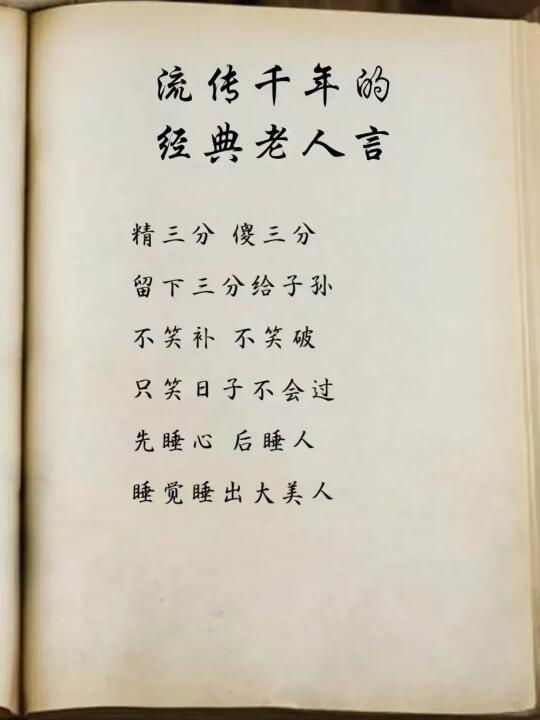 流传千年的
经典老人言
精三分 傻三分
留下三分给子孙
不笑补 不笑破
只笑日子不会过
先睡心 后睡人
睡觉睡出大美人